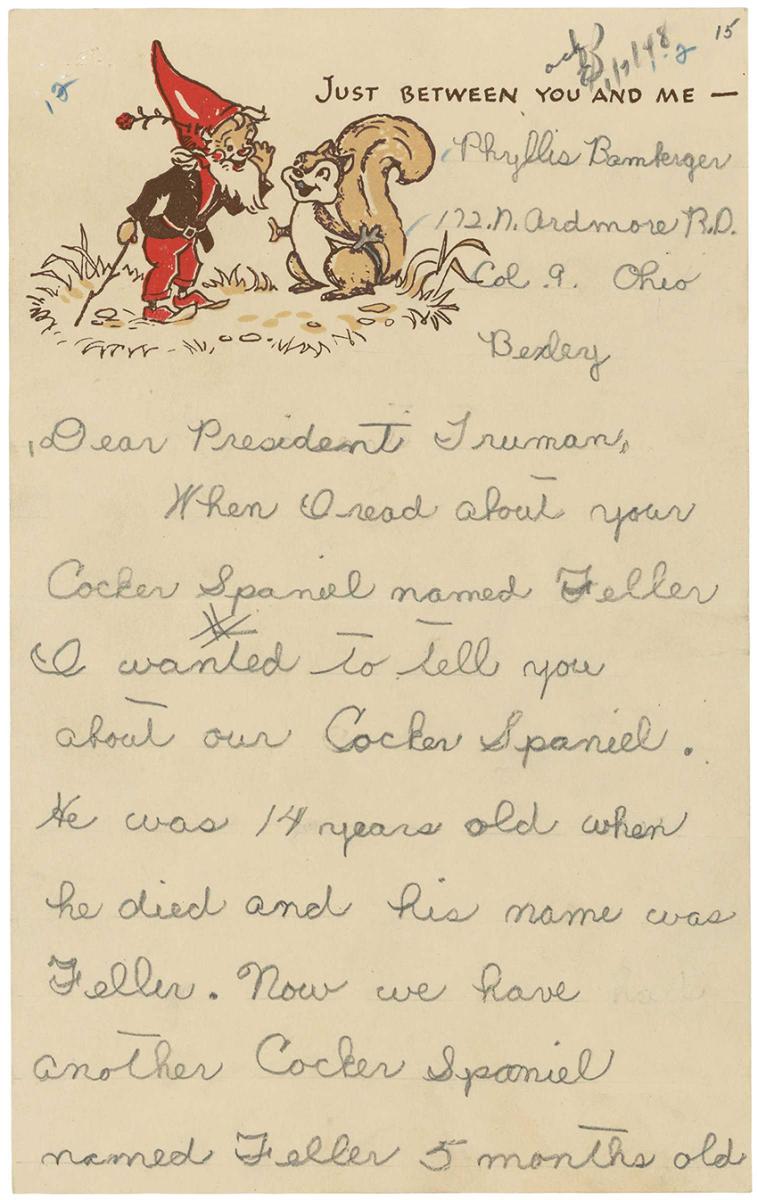 15
ack'd
1/7/48
12
12
JUST BETWEEN YOU AND ME —
Phyllis Bamberger
172. N. Ardmore R.D.
Col. 9. Ohio
Bexley
Dear President Truman,
When I read about your
Cocker Spaniel named Feller
I wanted to tell you
about our Cocker Spaniel.
He was 14 years old when
he died and his name was
Feller. Now we have
another Cocker Spaniel
named Feller 5 months old